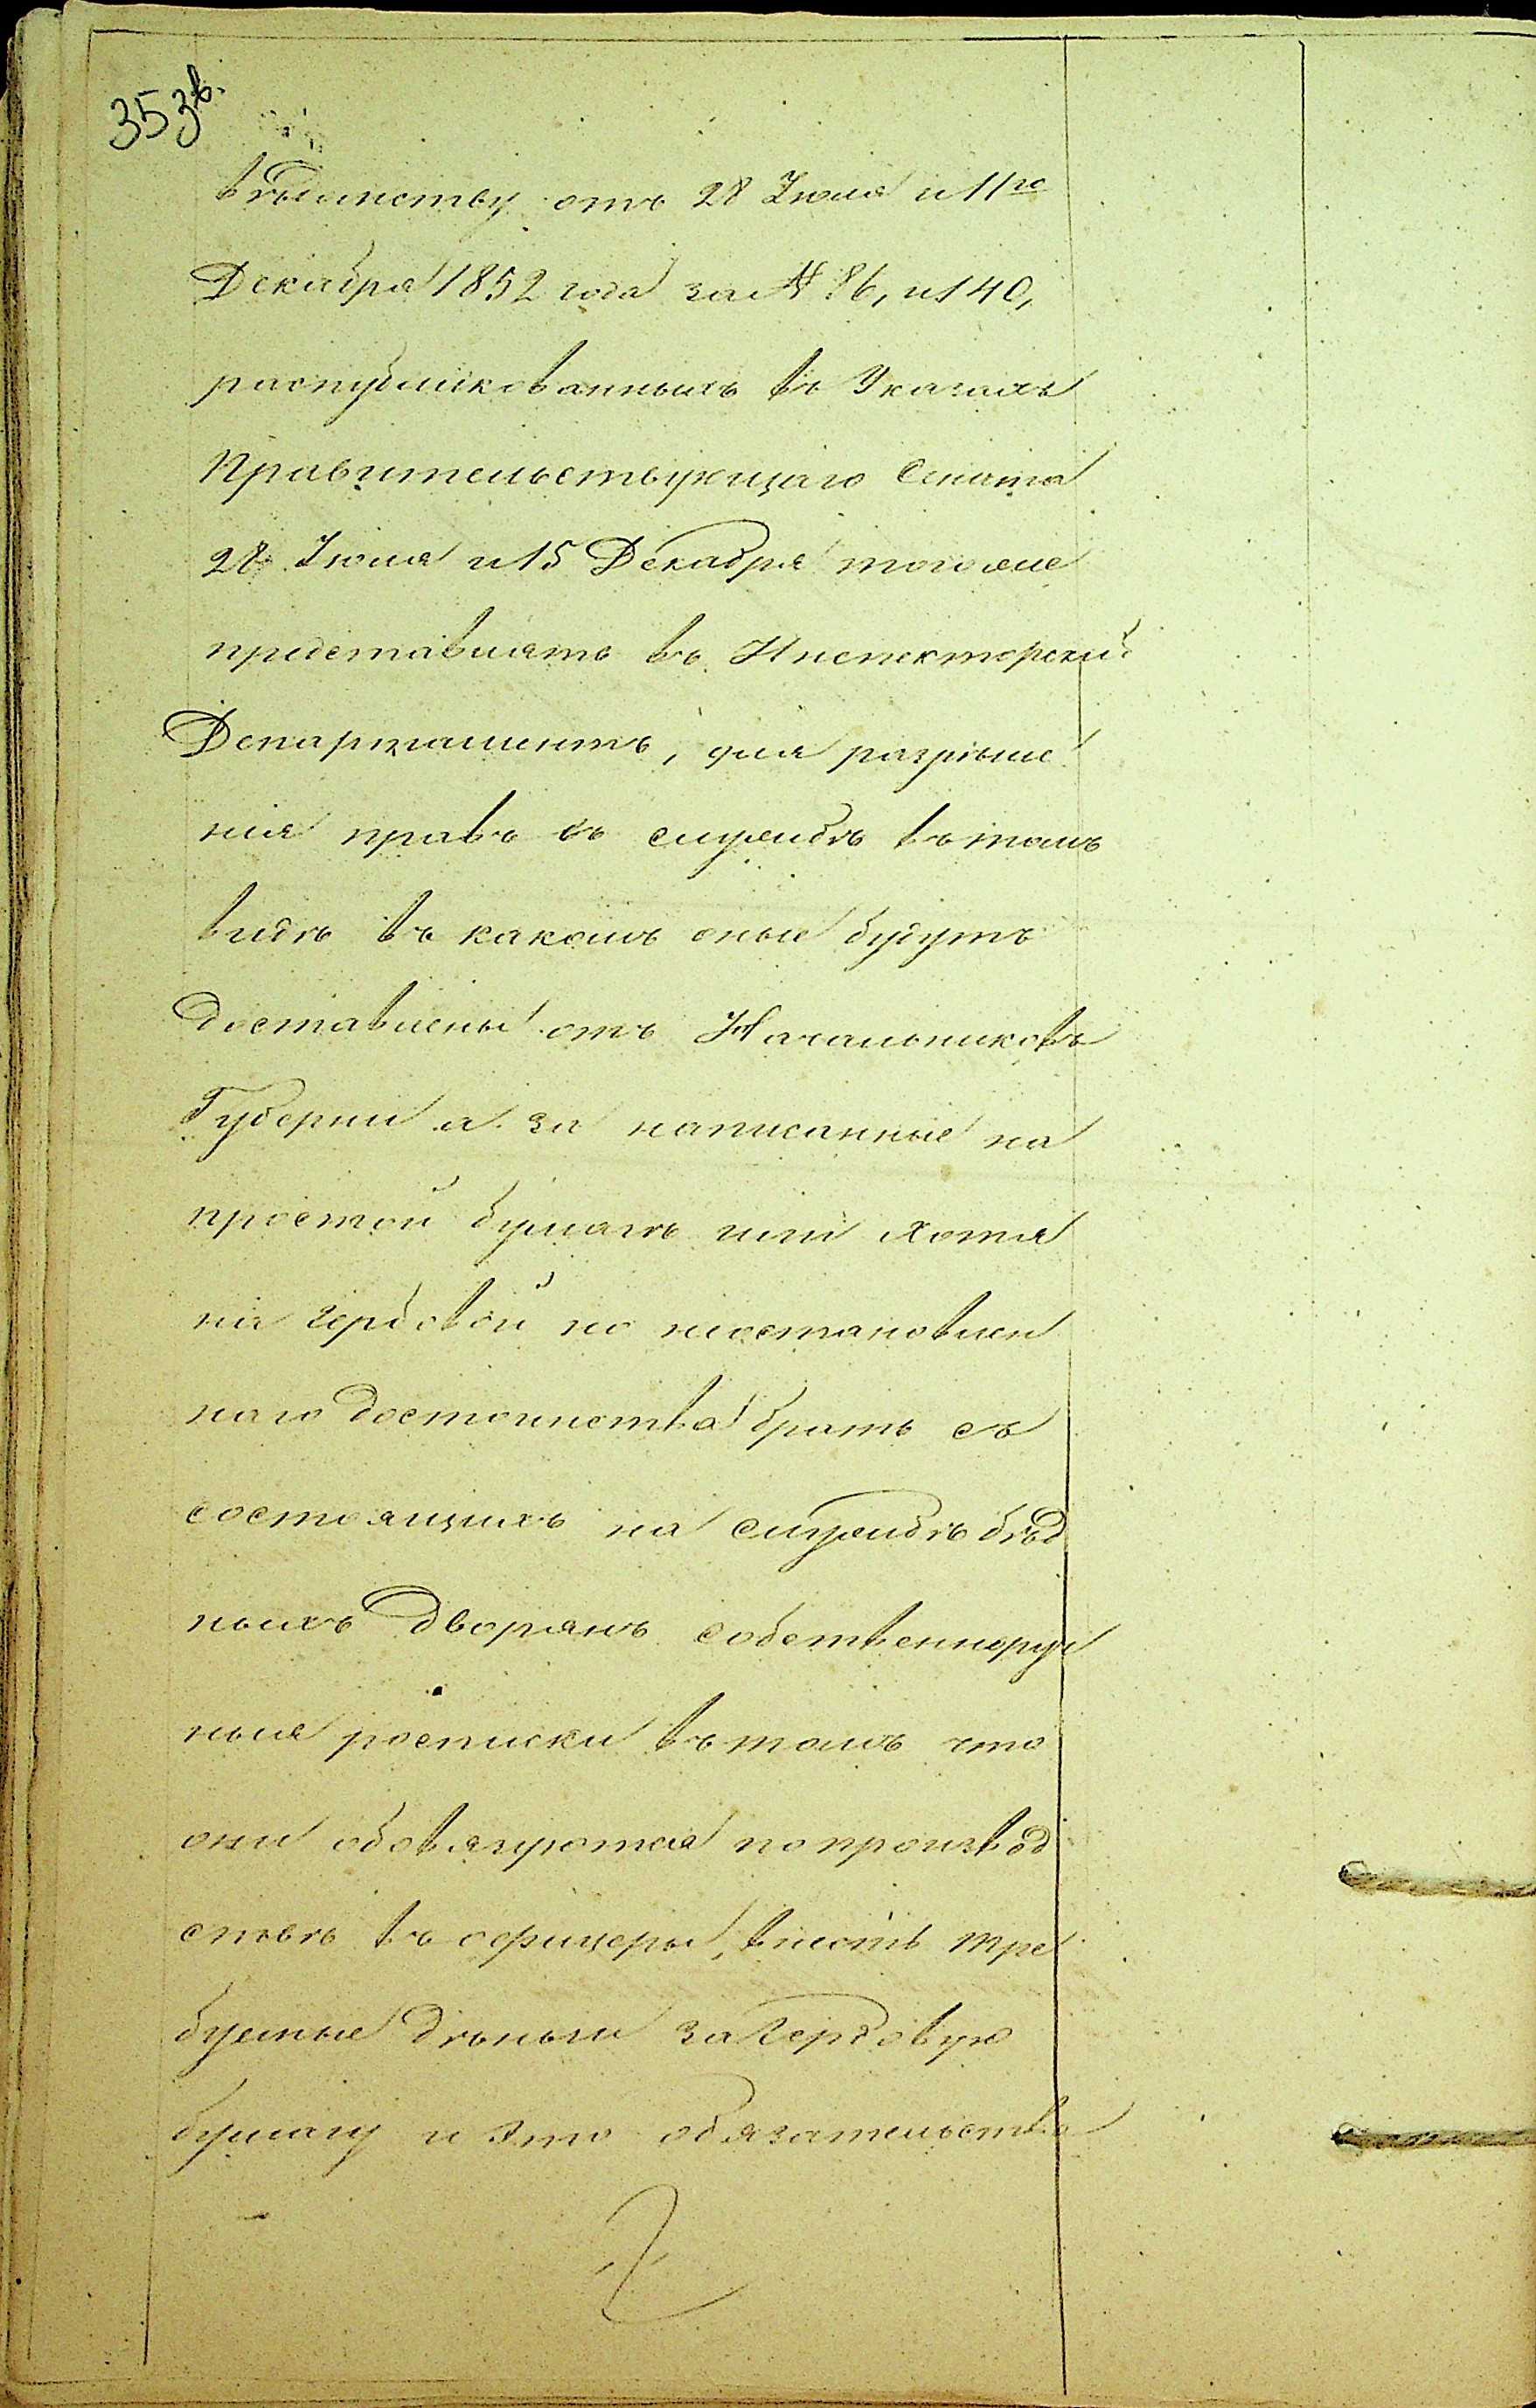 353в.
вѣдомству отъ 28 Іюля и 11го
Декабря 1852 года за № 86, и 140,
распубликованныхъ въ Указахъ
Правительствующаго Сената
28 Іюля и 15 Декабря тогоже
представлять въ Инспекторскій
Департаментъ, для разрѣше
нія правъ въ службѣ въ томъ
видѣ въ какомъ оные будутъ
доставлены отъ Начальниковъ
Губерніи а за написанные на
простой бумагѣ или хотя
на гербовой но неостановлен
наго достоинства брать съ
состоящихъ на службѣ бѣд
ныхъ дворянъ собственноруч
ныя росписки въ томъ что
они обовязуются по производ
ствѣ въ офицеры, внесть тре
буемые дѣньги за гербовую
бумагу и это обязательство